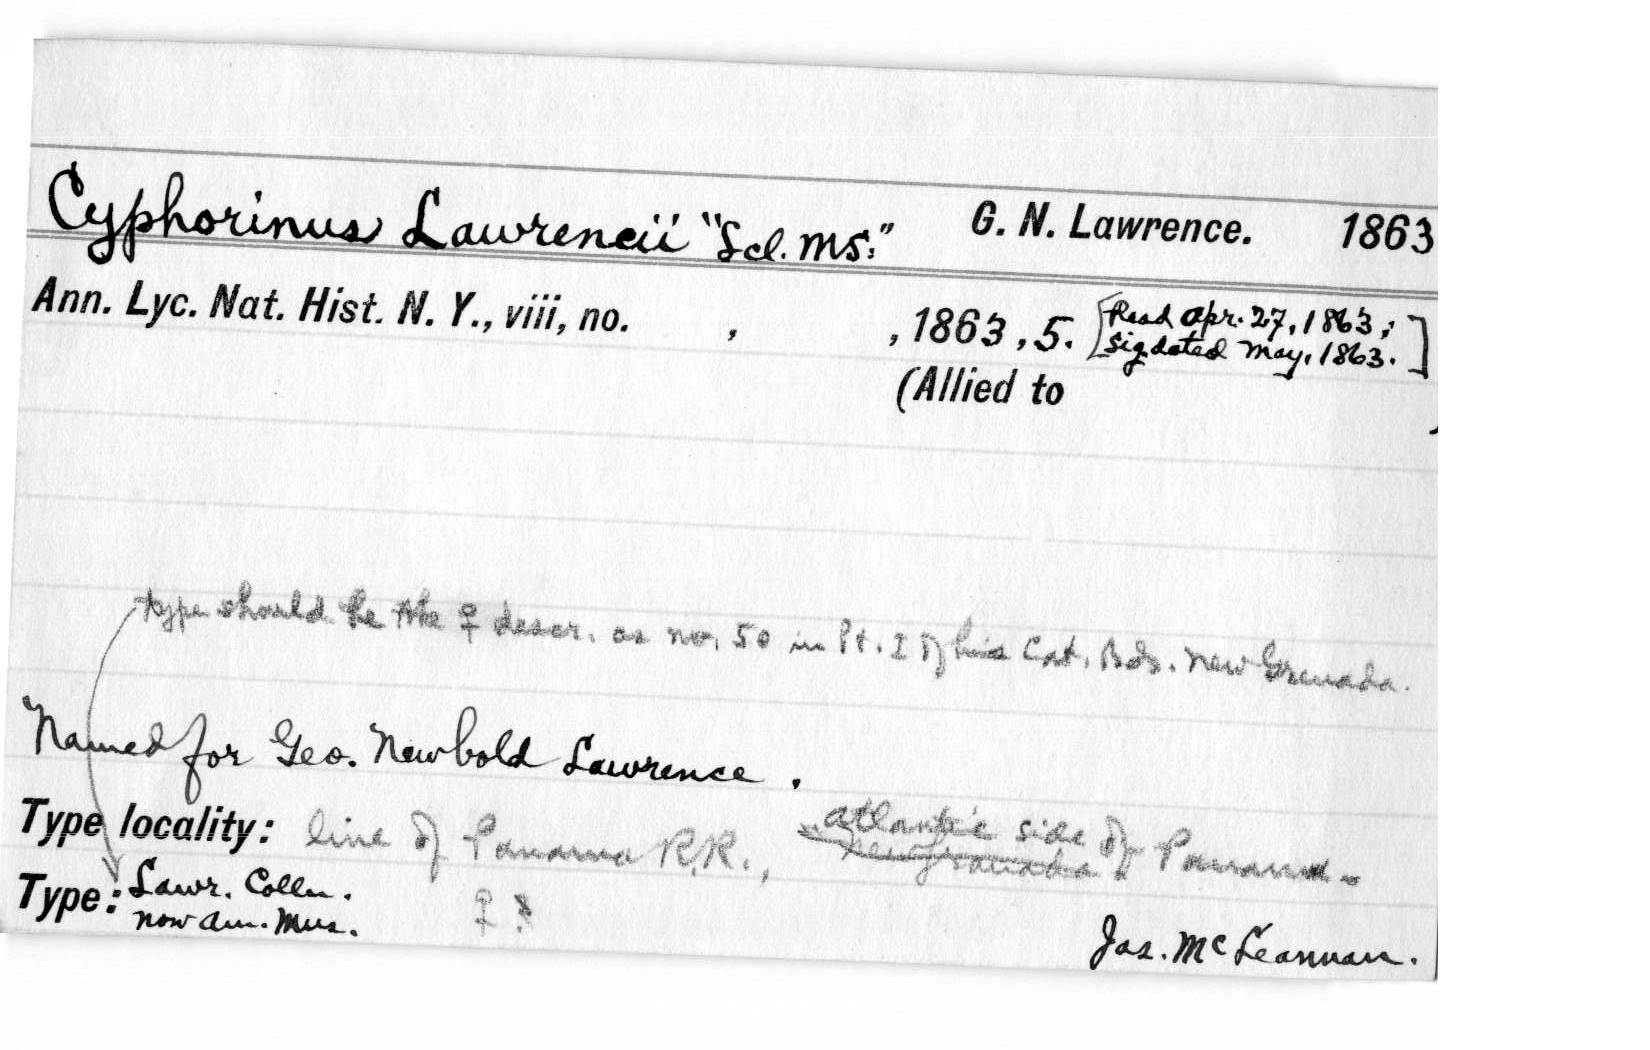 Cyphorinus Lawrencii "Scl. MS." G. N. Lawrence. 1863
Ann. Lyc. Nat. Hist. N. Y., viii, no. , , 1863, 5. [Read Apr. 27, 1863;
sig. dated May, 1863.]
(Allied to )
type should be the ♀ descr. as no. 50 in Pt. I of his Cat. Bds. New Grenada.
Named for Geo. Newbold Lawrence.
Type locality: line of Panama R.R., Atlantic side of Panama.
New Granada
Type: Lawr. Colln. ♀ ?
now Am. Mus.
Jas. McLeannan.